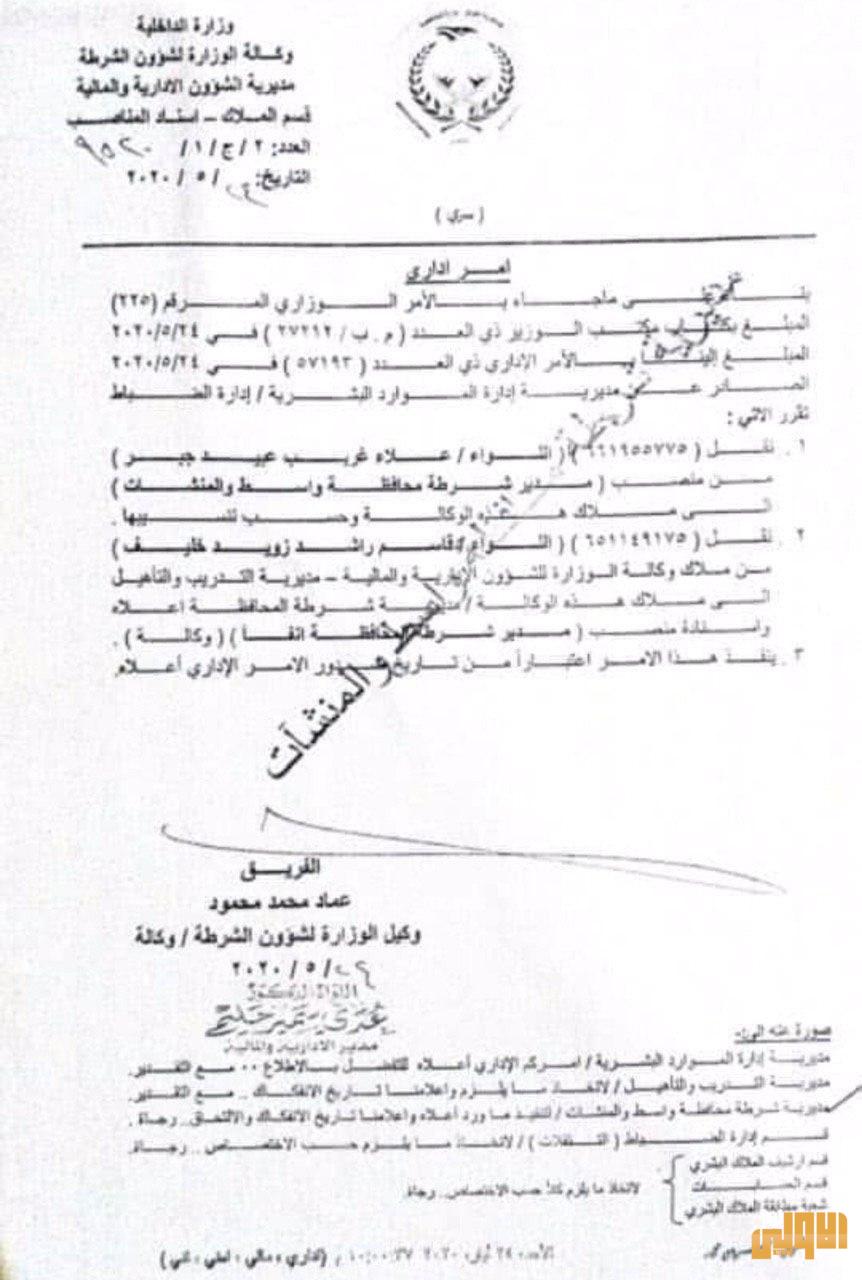 وزارة الداخلية
وكالة الوزارة لشؤون الشرطة
مديرية الشؤون الادارية والمالية
قسم الملاك – اسناد المناصب
العدد: ٢/ج/١/ ٩٥٢٠
التاريخ: ٢٤/ ٥ / ٢٠٢٠
( سري )
امر اداري
بناءً على ماجاء بالأمر الوزاري المرقم (٢٢٥)
المبلغ بكتاب مكتب الوزير ذي العدد ( م . ب / ٢٧٢١٢ ) في ٢٠٢٠/٥/٢٤
المبلغ الينا بالأمر الإداري ذي العدد ( ٥٧١٩٣ ) في ٢٠٢٠/٥/٢٤
الصادر عن مديرية إدارة الموارد البشرية / إدارة الضباط
تقرر الاتي :
١ . نقل ( ٦٦١٩٥٥٧٧٥ ) ( اللواء / علاء غريب عبيد جبر )
من منصب ( مدير شرطة محافظة واسط والمنشات )
الى ملاك هذه الوكالة وحسب تنسيبها .
٢ . نقل ( ٦٥١١٤٩١٧٥ ) ( اللواء / قاسم راشد زويد خليف )
من ملاك وكالة الوزارة للشؤون الإدارية والمالية – مديرية التدريب والتأهيل
الى ملاك هذه الوكالة / مديرية شرطة المحافظة اعلاه
واسناده منصب ( مدير شرطة المحافظة انفاً ) ( وكالة ) .
٣ . ينفذ هذا الامر اعتباراً من تاريخ صدور الامر الإداري أعلاه.
والمنشآت
الفريق
عماد محمد محمود
وكيل الوزارة لشؤون الشرطة / وكالة
٢٤/ ٥ / ٢٠٢٠
اللواء الدكتور
مدير الادارية والمالية
صورة عنه الى:-
مديرية إدارة الموارد البشرية / امركم الإداري أعلاه للتفضل بالاطلاع ٠٠ مع التقدير.
مديرية التدريب والتأهيل / لاتخاذ ما يلزم واعلامنا تاريخ الانفكاك .. مع التقدير.
مديرية شرطة محافظة واسط والمنشات / لتنفيذ ما ورد أعلاه واعلامنا تاريخ الانفكاك والالتحاق .. رجاءً .
قسم إدارة الضباط ( التنقلات ) / لاتخاذ ما يلزم حسب الاختصاص .. رجاءً.
قسم ارشيف الملاك البشري
قسم الحسابات
شعبة مطابقة الملاك البشري
لاتخاذ ما يلزم كلاً حسب الاختصاص .. رجاءً.
الأحد، ٢٤ أيار، ٢٠٢٠ ١٠:٠٠:٢٧ م
الاولى